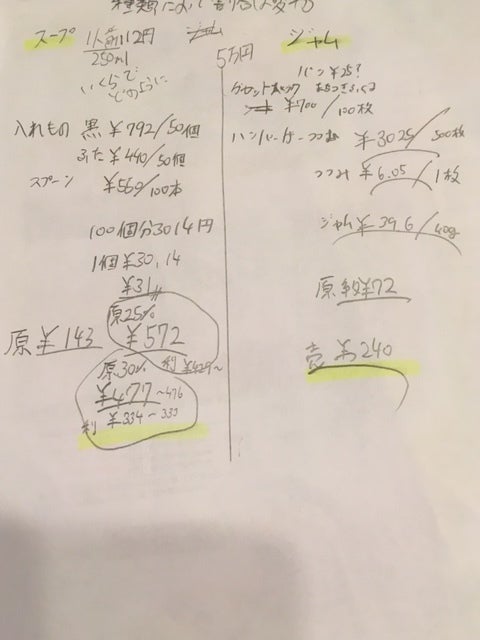 種類によって
スープ 1人前112円
250ml
いくらで
どのように
入れもの 黒 ¥792/50個
ふた ¥440/50個
スプーン ¥550/100本
100個分3014円
1個¥30,14
¥31
原25%
原¥143 ¥572
原30% 利 ¥429~
¥477~476
利 ¥334~333
5万円
ジャム
パン¥25?
¥700/100枚
ハンバーガーつつみ ¥3025/500枚
つつみ ¥6.05/1枚
ジャム ¥39.6/40g
原 ¥72
売 ¥240